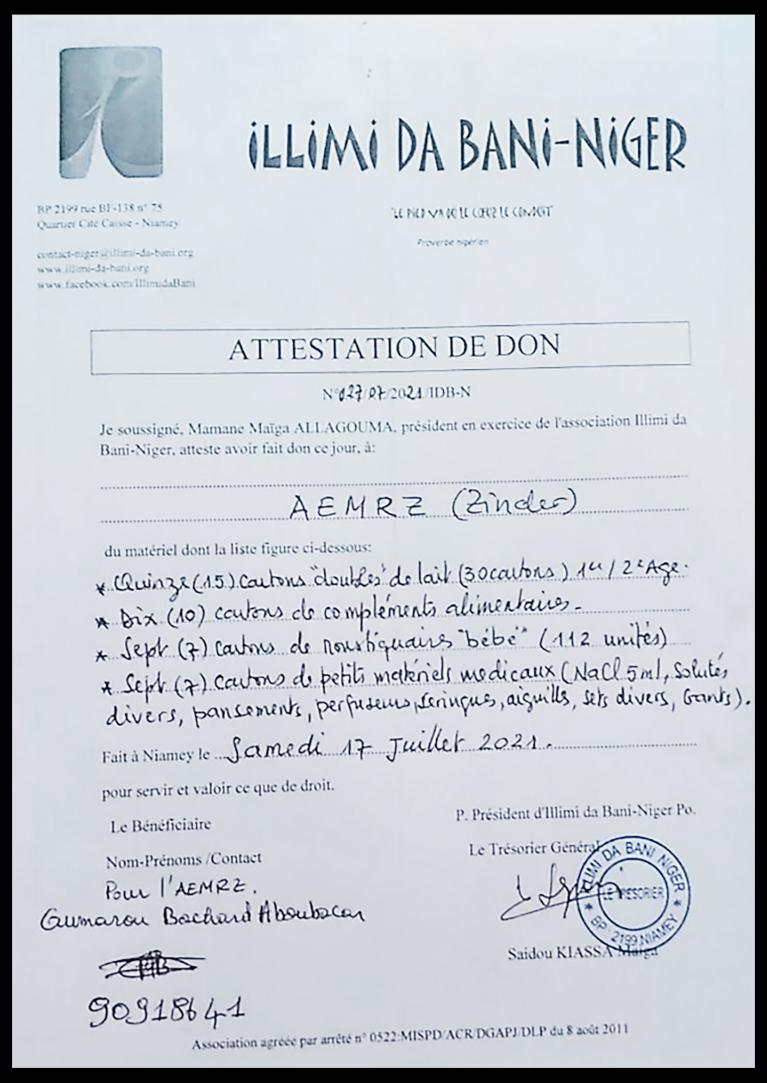 iLLiMi DA BANi-NiGER
"LE PiED VA OÙ LE CŒUR LE CONDUIT"
Proverbe nigérien
BP 2199 rue BF-138 n° 75
Quartier Cité Caisse - Niamey
contact-niger@illimi-da-bani.org
www.illimi-da-bani.org
www.facebook.com/IllimidaBani
ATTESTATION DE DON
N°027/07/2021/IDB-N
Je soussigné, Mamane Maïga ALLAGOUMA, président en exercice de l'association Illimi da
Bani-Niger, atteste avoir fait don ce jour, à:
AEMRZ (Zinder)
du matériel dont la liste figure ci-dessous:
* Quinze (15) cartons "doubles" de lait (30 cartons) 1er / 2e Age.
* Dix (10) cartons de compléments alimentaires.
* Sept (7) cartons de moustiquaires "bébé" (112 unités)
* Sept (7) cartons de petits matériels medicaux (NaCl 5ml, Solutés
divers, pansements, perfuseurs, seringues, aiguilles, sets divers, Gants).
Fait à Niamey le Samedi 17 Juillet 2021.
pour servir et valoir ce que de droit.
Le Bénéficiaire
Nom-Prénoms /Contact
Pour l'AEMRZ.
Oumarou Bachard Aboubacar
90918641
P. Président d'Illimi da Bani-Niger Po.
Le Trésorier Général
ILLIMI DA BANI NIGER
LE TRESORIER
* BP: 2199 NIAMEY *
Saidou KIASSA Maïga
Association agréée par arrêté n° 0522/MISPD/ACR/DGAPJ/DLP du 8 août 2011